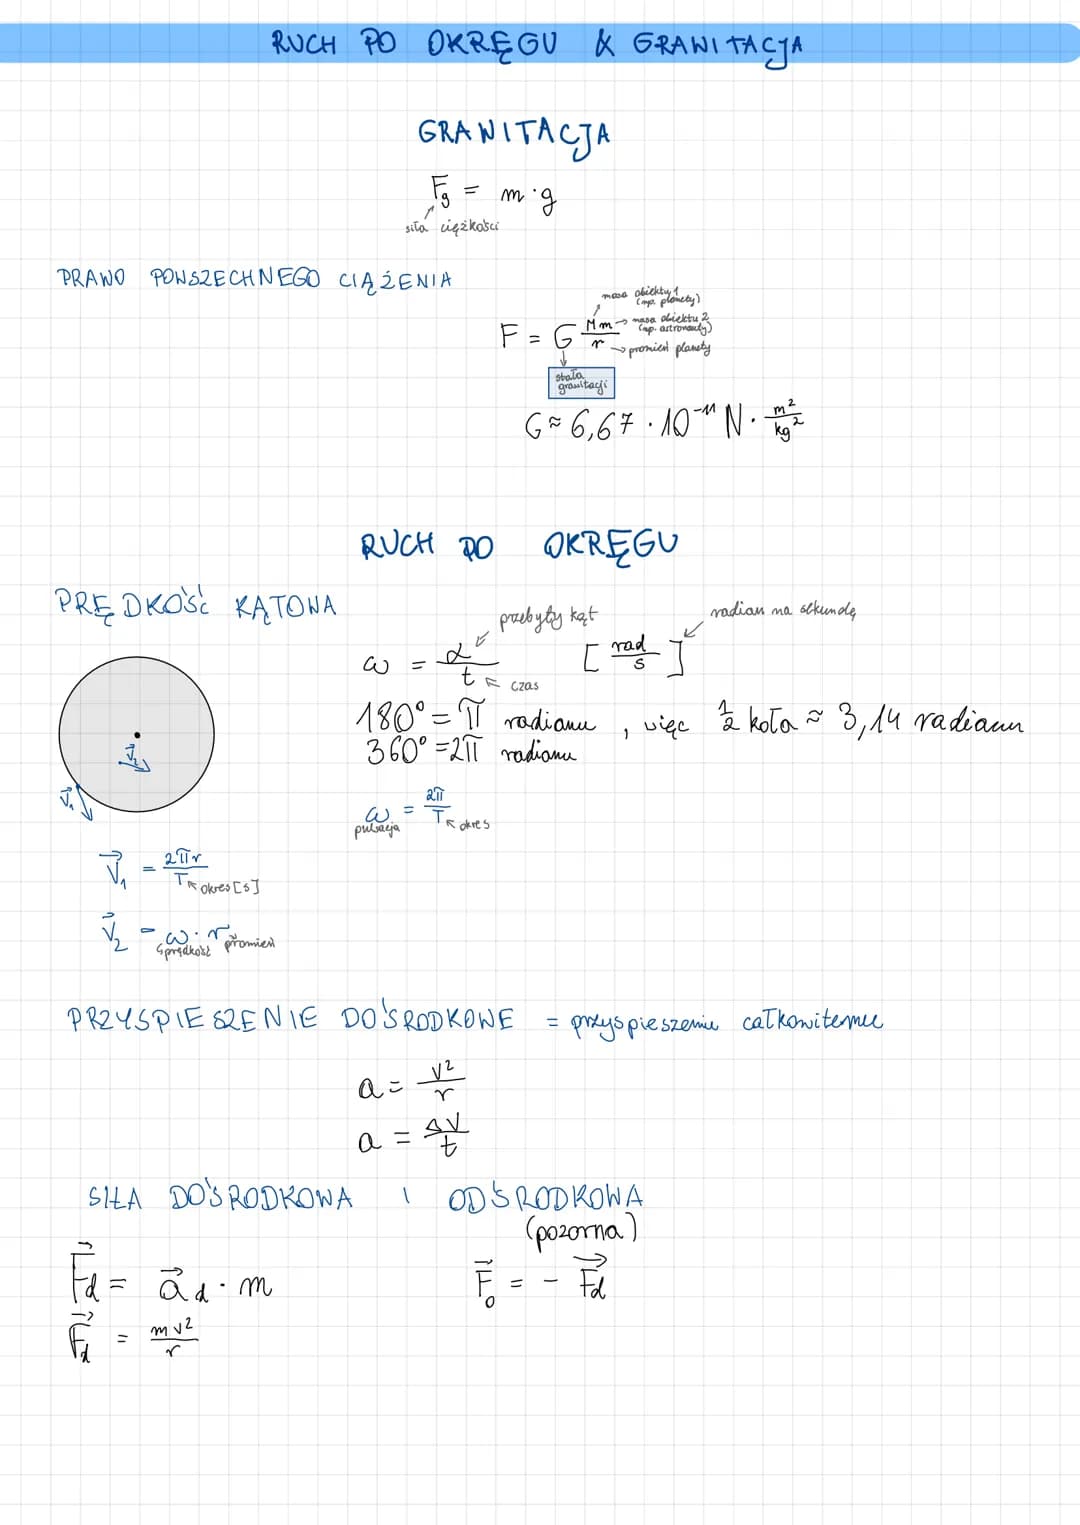 RUCH PO OKRĘGU & GRAWITACJA
GRAWITACJA
Fg = m·g
siła ciężkości
PRAWO POWSZECHNEGO CIĄŻENIA
masa obiektu 1
(np. planety)
F = G Mm/r
masa obiektu 2
(np. astronauty)
promień planety
stała
grawitacji
G ≈ 6,67 · 10⁻¹¹ N · m²/kg²
RUCH PO OKRĘGU
PRĘDKOŚĆ KĄTOWA
przebyty kąt
radian na sekundę
ω = α/t [rad/s]
czas
180° = π radianu, więc ½ koła ≈ 3,14 radianu
360° = 2π radianu
V₂
V₁
ω = 2π/T
pulsacja
okres
V₁ = 2πr/T
okres [s]
V₂ = ω · r
prędkość promień
PRZYSPIESZENIE DOŚRODKOWE = przyspieszeniu całkowitemu
a = V²/r
a = ΔV/t
SIŁA DOŚRODKOWA I ODŚRODKOWA
(pozorna)
F⃗d = a⃗d · m
F⃗o = - F⃗d
F⃗d = mv²/r